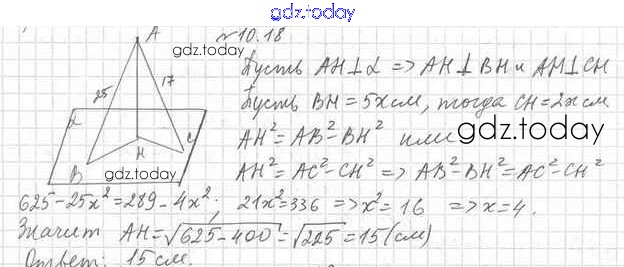 gdz.today
№10.18
A
gdz.today
25 17
Пусть AH⊥α => AH⊥BH и AH⊥CH
Пусть BH=5x см, тогда CH=2x см
α
AH²=AB²-BH² или
gdz.today
B H C
gdz.today
AH²=AC²-CH² => AB²-BH²=AC²-CH²
625-25x²=289-4x²; 21x²=336 => x²=16 => x=4.
Значит AH=√625-400=√225=15(см)
Ответ: 15 см.